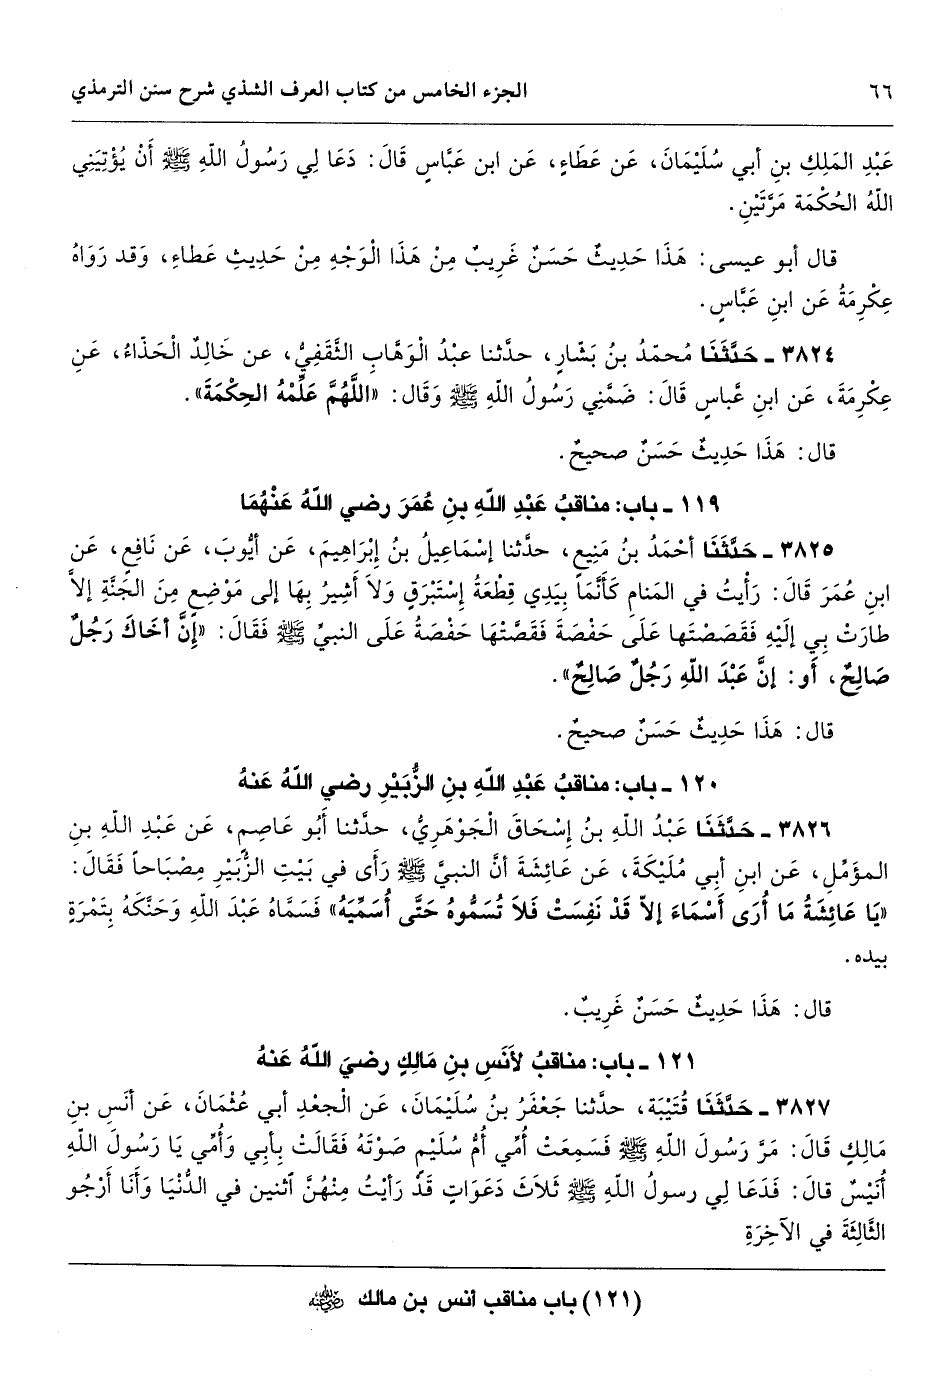 ٦٦ الجزء الخامس من كتاب العرف الشذي شرح سنن الترمذي
عَبْدِ المَلِكِ بنِ أبي سُلَيْمَانَ، عَن عَطَاءٍ، عَن ابن عَبَّاسٍ قَالَ: دَعَا لِي رَسُولُ اللّهِ ﷺ أَنْ يُؤْتِيَنِي
اللّهُ الحُكْمَةَ مَرَّتَيْنِ.
قال أبو عيسى: هَذَا حَدِيثٌ حَسَنٌ غَرِيبٌ مِنْ هَذَا الْوَجْهِ مِنْ حَدِيثِ عَطاءٍ، وَقد رَوَاهُ
عِكْرِمَةُ عَن ابنِ عَبَّاسٍ.
٣٨٢٤ - حَدَّثَنَا مُحمّدُ بنُ بَشّارٍ، حدَّثنا عبْدُ الْوَهَّابِ الثَّقَفِيُّ، عن خَالِدٌ الْحَذّاءُ، عَنِ
عِكْرِمَةَ، عَن ابنِ عبَّاسٍ قَالَ: ضَمَّنِي رَسُولُ اللّهِ ﷺ وَقَال: «اللَّهُمَّ عَلِّمْهُ الحِكْمَةَ».
قال: هَذَا حَدِيثٌ حَسَنٌ صحيحٌ.
١١٩ - باب: مناقبُ عَبْدِ اللّهِ بنِ عُمَرَ رضي اللّهُ عَنْهُمَا
٣٨٢٥ - حَدَّثَنَا أحْمَدُ بنُ مَنِيعٍ، حدَّثنا إسْمَاعِيلُ بنُ إبْرَاهِيمَ، عَن أيُّوبَ، عَن نَافِعٍ، عَن
ابنِ عُمَرَ قَالَ: رَأيْتُ في المَنامِ كَأَنَّمَا بِيَدِي قِطْعَةُ إِسْتَبْرَقٍ وَلاَ أشِيرُ بِهَا إلى مَوْضِعٍ مِنَ الجَنَّةِ إلاَّ
طارَتْ بِي إلَيْهِ فَقَصَصْتَها عَلَى حَفْصَةَ فَقَصَّتْهَا حَفْصَةُ عَلَى النبيِّ ﷺ فَقَالَ: «إِنَّ أخَاكَ رَجُلٌ
صَالِحٌ، أو: إنَّ عَبْدَ اللّهِ رَجُلٌ صَالِحٌ».
قال: هَذَا حَدِيثٌ حَسَنٌ صحيحٌ.
١٢٠ - باب: مناقبُ عَبْدِ اللّهِ بنِ الزُّبَيْرِ رضي اللّهُ عَنهُ
٣٨٢٦ - حَدَّثَنَا عَبْدُ اللّهِ بنُ إسْحَاقَ الْجَوْهَرِيُّ، حدَّثنا أَبُو عَاصِمٍ، عَن عَبْدِ اللّهِ بنِ
المؤمِّلِ، عَن ابنِ أبي مُلَيْكَةَ، عَن عائِشَةَ أنَّ النبيَّ ﷺ رَأى في بَيْتِ الزُّبَيْرِ مِصْبَاحاً فَقَالَ:
«يَا عَائِشَةُ مَا أُرَى أسْمَاءَ إلاّ قَدْ نَفِسَتْ فَلاَ تُسَمُّوهُ حَتَّى أُسَمِّيَهُ» فَسَمَّاهُ عَبْدَ اللّهِ وَحَنَّكَهُ بِتَمْرَةٍ
بيده.
قال: هَذَا حَدِيثٌ حَسَنٌ غَرِيبٌ.
١٢١ - باب: مناقبُ لأنَسِ بنِ مَالِكٍ رضيَ اللّهُ عَنهُ
٣٨٢٧ - حَدَّثَنَا قُتَيْبَة، حدَّثنا جَعْفَرُ بنُ سُلَيْمَانَ، عَن الْجعْدِ أبي عُثْمَانَ، عَن أنَسِ بنِ
مَالِكٍ قَالَ: مَرَّ رَسُولَ اللّهِ ﷺ فَسَمِعَتْ أُمِّي أُمُّ سُلَيْمٍ صَوْتَهُ فَقَالَتْ بِأبي وَأُمِّي يَا رَسُولَ اللّهِ
أُنَيْسٌ قالَ: فَدَعَا لِي رسولُ اللّهِ ﷺ ثَلاَثَ دَعَوَاتٍ قَدْ رَأيْتُ مِنْهُنَّ أثنين في الدُّنْيَا وَأنَا أرْجُو
الثّالِثَةَ في الآخِرَةِ
(١٢١) باب مناقب أنس بن مالك رضي الله عنه